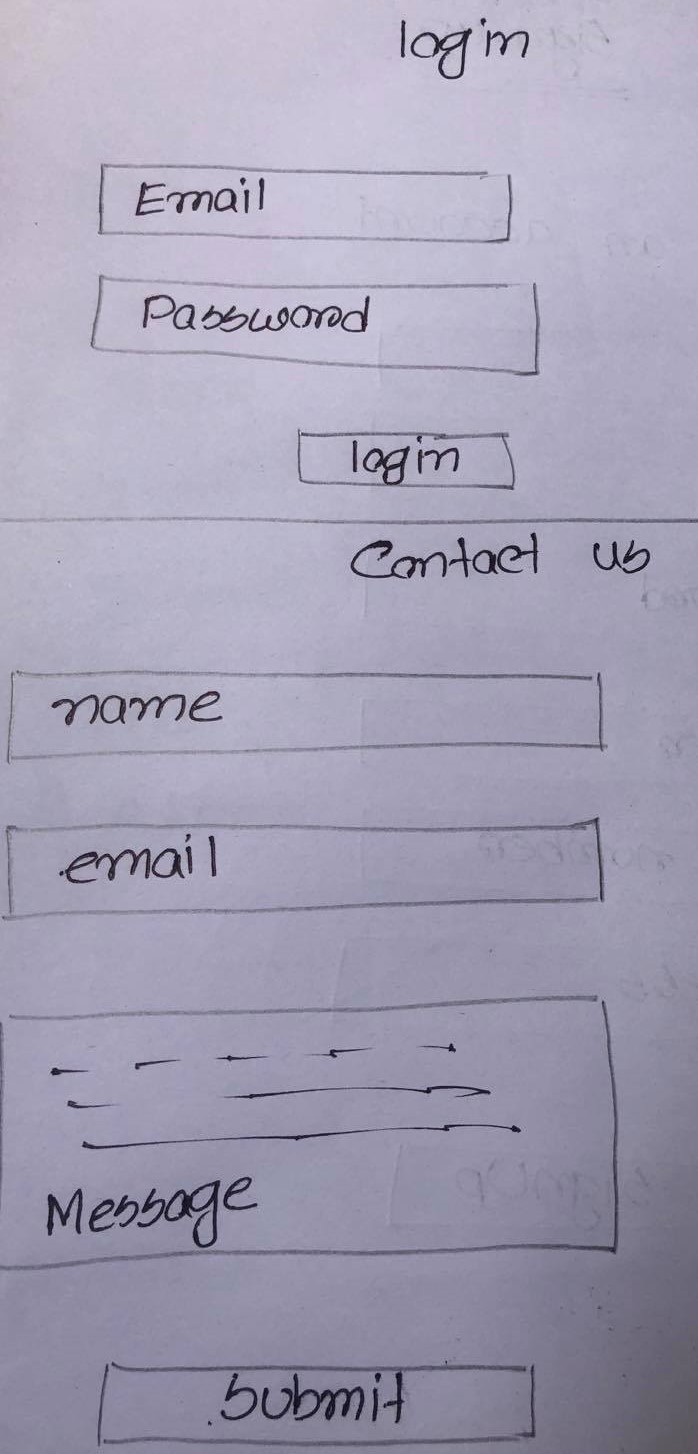 login
Email
Password
login
Contact us
name
email
Message
Submit